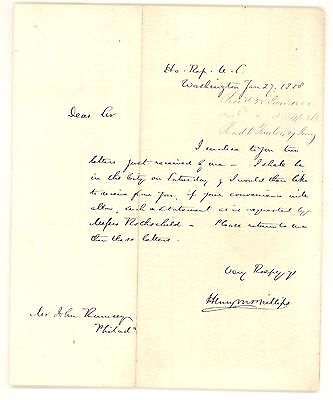 Ho. Rep. U. S.
Washington Jan 27. 1858
Dear Sir
I enclose to you two
letters just received by me — I shall be
in the City on Saturday & I would then like
to receive from you, if your convenience will
allow, such a statement as is requested by
Messrs Rothschild — Please return to me
then these letters.
Very Respy yr
Henry M Phillips
Mr John Rumsey
Philada